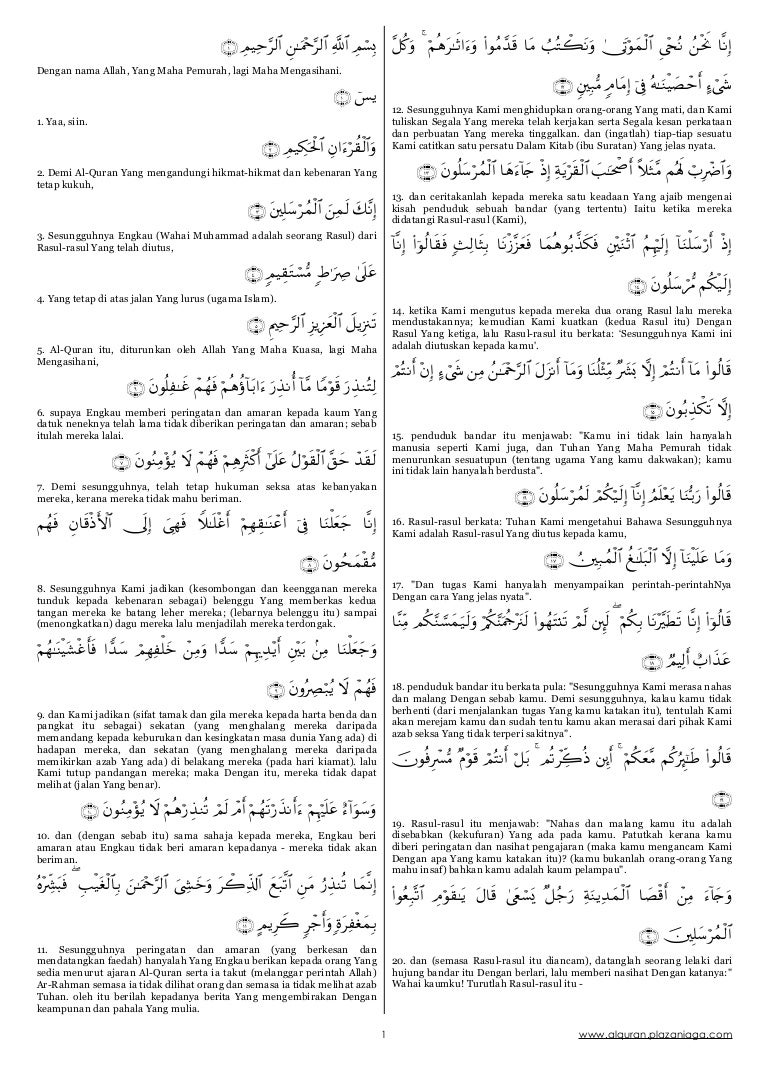 بِسْمِ ٱللَّهِ ٱلرَّحْمَـٰنِ ٱلرَّحِيمِ
Dengan nama Allah, Yang Maha Pemurah, lagi Maha Mengasihani.
يسٓ ١
1. Yaa, siin.
وَٱلْقُرْءَانِ ٱلْحَكِيمِ ٢
2. Demi Al-Quran Yang mengandungi hikmat-hikmat dan kebenaran Yang
tetap kukuh,
إِنَّكَ لَمِنَ ٱلْمُرْسَلِينَ ٣
3. Sesungguhnya Engkau (Wahai Muhammad adalah seorang Rasul) dari
Rasul-rasul Yang telah diutus,
عَلَىٰ صِرَٰطٍ مُّسْتَقِيمٍ ٤
4. Yang tetap di atas jalan Yang lurus (ugama Islam).
تَنزِيلَ ٱلْعَزِيزِ ٱلرَّحِيمِ ٥
5. Al-Quran itu, diturunkan oleh Allah Yang Maha Kuasa, lagi Maha
Mengasihani,
لِتُنذِرَ قَوْمًا مَّآ أُنذِرَ ءَابَآؤُهُمْ فَهُمْ غَـٰفِلُونَ ٦
6. supaya Engkau memberi peringatan dan amaran kepada kaum Yang
datuk neneknya telah lama tidak diberikan peringatan dan amaran; sebab
itulah mereka lalai.
لَقَدْ حَقَّ ٱلْقَوْلُ عَلَىٰٓ أَكْثَرِهِمْ فَهُمْ لَا يُؤْمِنُونَ ٧
7. Demi sesungguhnya, telah tetap hukuman seksa atas kebanyakan
mereka, kerana mereka tidak mahu beriman.
إِنَّا جَعَلْنَا فِىٓ أَعْنَـٰقِهِمْ أَغْلَـٰلًا فَهِىَ إِلَى ٱلْأَذْقَانِ فَهُم
مُّقْمَحُونَ ٨
8. Sesungguhnya Kami jadikan (kesombongan dan keengganan mereka
tunduk kepada kebenaran sebagai) belenggu Yang memberkas kedua
tangan mereka ke batang leher mereka; (lebarnya belenggu itu) sampai
(menongkatkan) dagu mereka lalu menjadilah mereka terdongak.
وَجَعَلْنَا مِنۢ بَيْنِ أَيْدِيهِمْ سَدًّا وَمِنْ خَلْفِهِمْ سَدًّا فَأَغْشَيْنَـٰهُمْ
فَهُمْ لَا يُبْصِرُونَ ٩
9. dan Kami jadikan (sifat tamak dan gila mereka kepada harta benda dan
pangkat itu sebagai) sekatan (yang menghalang mereka daripada
memandang kepada keburukan dan kesingkatan masa dunia Yang ada) di
hadapan mereka, dan sekatan (yang menghalang mereka daripada
memikirkan azab Yang ada) di belakang mereka (pada hari kiamat). lalu
Kami tutup pandangan mereka; maka Dengan itu, mereka tidak dapat
melihat (jalan Yang benar).
وَسَوَآءٌ عَلَيْهِمْ ءَأَنذَرْتَهُمْ أَمْ لَمْ تُنذِرْهُمْ لَا يُؤْمِنُونَ ١٠
10. dan (dengan sebab itu) sama sahaja kepada mereka, Engkau beri
amaran atau Engkau tidak beri amaran kepadanya - mereka tidak akan
beriman.
إِنَّمَا تُنذِرُ مَنِ ٱتَّبَعَ ٱلذِّكْرَ وَخَشِىَ ٱلرَّحْمَـٰنَ بِٱلْغَيْبِ ۖ فَبَشِّرْهُ
بِمَغْفِرَةٍ وَأَجْرٍ كَرِيمٍ ١١
11. Sesungguhnya peringatan dan amaran (yang berkesan dan
mendatangkan faedah) hanyalah Yang Engkau berikan kepada orang Yang
sedia menurut ajaran Al-Quran serta ia takut (melanggar perintah Allah)
Ar-Rahman semasa ia tidak dilihat orang dan semasa ia tidak melihat azab
Tuhan. oleh itu berilah kepadanya berita Yang mengembirakan Dengan
keampunan dan pahala Yang mulia.
إِنَّا نَحْنُ نُحْىِ ٱلْمَوْتَىٰ وَنَكْتُبُ مَا قَدَّمُوا۟ وَءَاثَـٰرَهُمْ ۚ وَكُلَّ
شَىْءٍ أَحْصَيْنَـٰهُ فِىٓ إِمَامٍ مُّبِينٍ ١٢
12. Sesungguhnya Kami menghidupkan orang-orang Yang mati, dan Kami
tuliskan Segala Yang mereka telah kerjakan serta Segala kesan perkataan
dan perbuatan Yang mereka tinggalkan. dan (ingatlah) tiap-tiap sesuatu
Kami catitkan satu persatu Dalam Kitab (ibu Suratan) Yang jelas nyata.
وَٱضْرِبْ لَهُم مَّثَلًا أَصْحَـٰبَ ٱلْقَرْيَةِ إِذْ جَآءَهَا ٱلْمُرْسَلُونَ ١٣
13. dan ceritakanlah kepada mereka satu keadaan Yang ajaib mengenai
kisah penduduk sebuah bandar (yang tertentu) Iaitu ketika mereka
didatangi Rasul-rasul (Kami),
إِذْ أَرْسَلْنَآ إِلَيْهِمُ ٱثْنَيْنِ فَكَذَّبُوهُمَا فَعَزَّزْنَا بِثَالِثٍ فَقَالُوٓا۟ إِنَّآ
إِلَيْكُم مُّرْسَلُونَ ١٤
14. ketika Kami mengutus kepada mereka dua orang Rasul lalu mereka
mendustakannya; kemudian Kami kuatkan (kedua Rasul itu) Dengan
Rasul Yang ketiga, lalu Rasul-rasul itu berkata: 'Sesungguhnya Kami ini
adalah diutuskan kepada kamu'.
قَالُوا۟ مَآ أَنتُمْ إِلَّا بَشَرٌ مِّثْلُنَا وَمَآ أَنزَلَ ٱلرَّحْمَـٰنُ مِن شَىْءٍ إِنْ أَنتُمْ
إِلَّا تَكْذِبُونَ ١٥
15. penduduk bandar itu menjawab: "Kamu ini tidak lain hanyalah
manusia seperti Kami juga, dan Tuhan Yang Maha Pemurah tidak
menurunkan sesuatupun (tentang ugama Yang kamu dakwakan); kamu
ini tidak lain hanyalah berdusta".
قَالُوا۟ رَبُّنَا يَعْلَمُ إِنَّآ إِلَيْكُمْ لَمُرْسَلُونَ ١٦
16. Rasul-rasul berkata: Tuhan Kami mengetahui Bahawa Sesungguhnya
Kami adalah Rasul-rasul Yang diutus kepada kamu,
وَمَا عَلَيْنَآ إِلَّا ٱلْبَلَـٰغُ ٱلْمُبِينُ ١٧
17. "Dan tugas Kami hanyalah menyampaikan perintah-perintahNya
Dengan cara Yang jelas nyata".
قَالُوٓا۟ إِنَّا تَطَيَّرْنَا بِكُمْ ۖ لَئِن لَّمْ تَنتَهُوا۟ لَنَرْجُمَنَّكُمْ وَلَيَمَسَّنَّكُم مِّنَّا
عَذَابٌ أَلِيمٌ ١٨
18. penduduk bandar itu berkata pula: "Sesungguhnya Kami merasa nahas
dan malang Dengan sebab kamu. Demi sesungguhnya, kalau kamu tidak
berhenti (dari menjalankan tugas Yang kamu katakan itu), tentulah Kami
akan merejam kamu dan sudah tentu kamu akan merasai dari pihak Kami
azab seksa Yang tidak terperi sakitnya".
قَالُوا۟ طَـٰٓئِرُكُم مَّعَكُمْ ۚ أَئِن ذُكِّرْتُم ۚ بَلْ أَنتُمْ قَوْمٌ مُّسْرِفُونَ
١٩
19. Rasul-rasul itu menjawab: "Nahas dan malang kamu itu adalah
disebabkan (kekufuran) Yang ada pada kamu. Patutkah kerana kamu
diberi peringatan dan nasihat pengajaran (maka kamu mengancam Kami
Dengan apa Yang kamu katakan itu)? (kamu bukanlah orang-orang Yang
mahu insaf) bahkan kamu adalah kaum pelampau".
وَجَآءَ مِنْ أَقْصَا ٱلْمَدِينَةِ رَجُلٌ يَسْعَىٰ قَالَ يَـٰقَوْمِ ٱتَّبِعُوا۟
ٱلْمُرْسَلِينَ ٢٠
20. dan (semasa Rasul-rasul itu diancam), datanglah seorang lelaki dari
hujung bandar itu Dengan berlari, lalu memberi nasihat Dengan katanya:"
Wahai kaumku! Turutlah Rasul-rasul itu -
1
www.alquran.plazaniaga.com